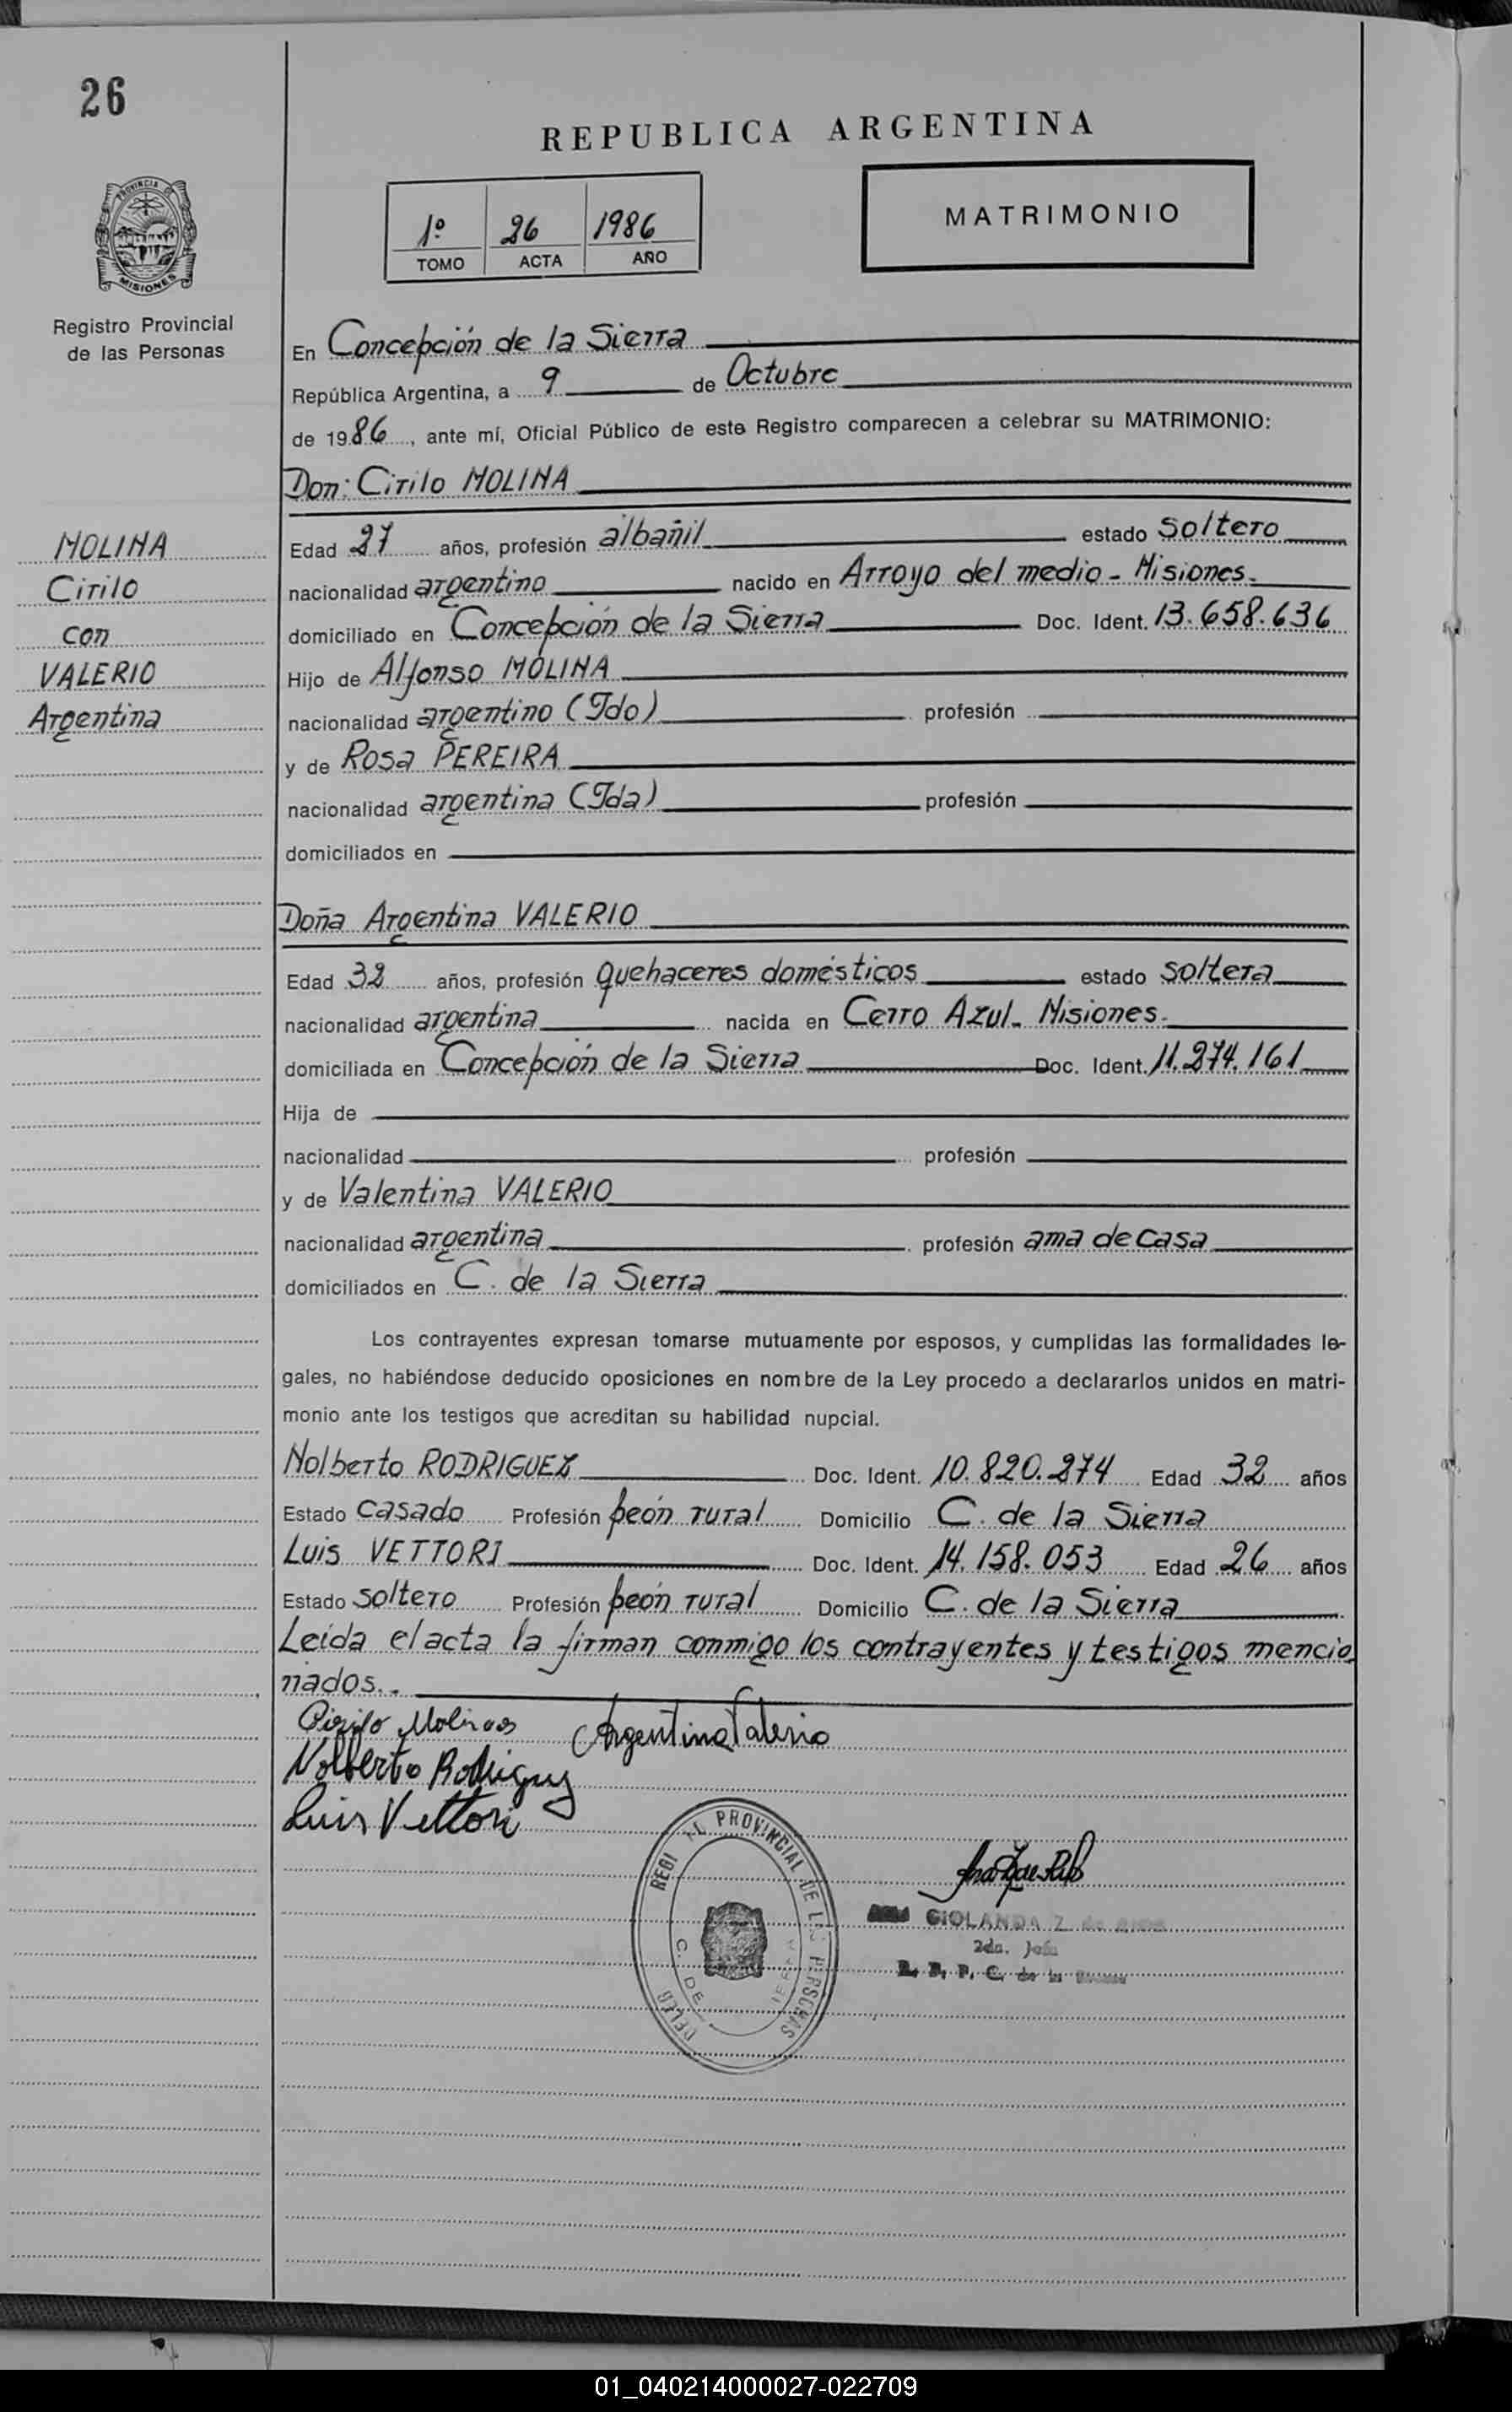 26
REPUBLICA ARGENTINA
PROVINCIA DE
MISIONES
Registro Provincial
de las Personas
1º 26 1986
TOMO ACTA AÑO
MATRIMONIO
En Concepción de la Sierra
República Argentina, a 9 de Octubre
de 1986, ante mí, Oficial Público de este Registro comparecen a celebrar su MATRIMONIO:
Don: Cirilo MOLINA
MOLINA
Cirilo
con
VALERIO
Argentina
Edad 27 años, profesión albañil estado soltero
nacionalidad argentino nacido en Arroyo del medio - Misiones.
domiciliado en Concepción de la Sierra Doc. Ident. 13.658.636
Hijo de Alfonso MOLINA
nacionalidad argentino (Fdo) profesión
y de Rosa PEREIRA
nacionalidad argentina (Fda) profesión
domiciliados en
Doña Argentina VALERIO
Edad 32 años, profesión quehaceres domésticos estado soltera
nacionalidad argentina nacida en Cerro Azul - Misiones.
domiciliada en Concepción de la Sierra Doc. Ident. 11.274.161
Hija de
nacionalidad profesión
y de Valentina VALERIO
nacionalidad argentina profesión ama de casa
domiciliados en C. de la Sierra
Los contrayentes expresan tomarse mutuamente por esposos, y cumplidas las formalidades le-
gales, no habiéndose deducido oposiciones en nombre de la Ley procedo a declararlos unidos en matri-
monio ante los testigos que acreditan su habilidad nupcial.
Nolberto RODRIGUEZ Doc. Ident. 10.820.274 Edad 32 años
Estado casado Profesión peón rural Domicilio C. de la Sierra
Luis VETTORI Doc. Ident. 14.158.053 Edad 26 años
Estado soltero Profesión peón rural Domicilio C. de la Sierra
Leída el acta la firman conmigo los contrayentes y testigos mencio
nados..
Argentina Valerio
Nolberto Rodriguez
Luis Vettori
PROVINCIAL DE LAS PERSONAS
C. DE
GIOLANDA Z. de
2da. Jefa
R. P. P. C. de la
01_040214000027-022709